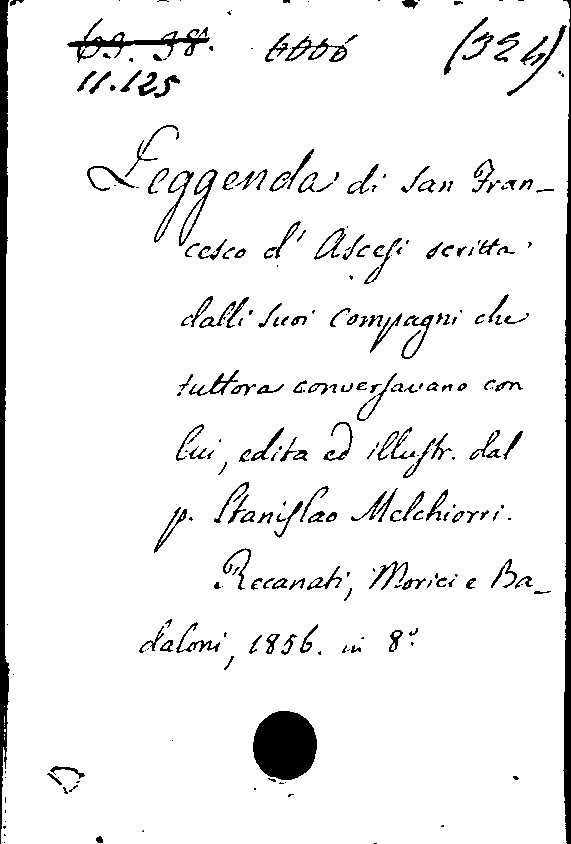 63. 38. 6006 (324)
11.125
Leggenda di San Fran-
cesco d' Ascesi scritta
dalli suoi compagni che
tuttora conversavano con
lui, edita ed illustr. dal
p. Stanislao Melchiorri.
Recanati, Morici e Ba-
daloni, 1856. in 8º